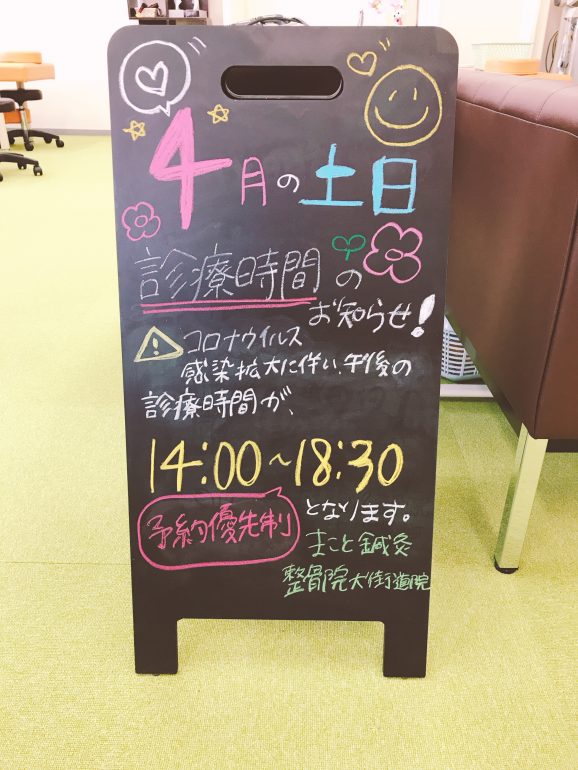 4月の土日
診療時間の
お知らせ!
コロナウイルス
感染拡大に伴い、午後の
診療時間が、
14:00~18:30
予約優先制
となります。
まこと鍼灸
整骨院大街道院